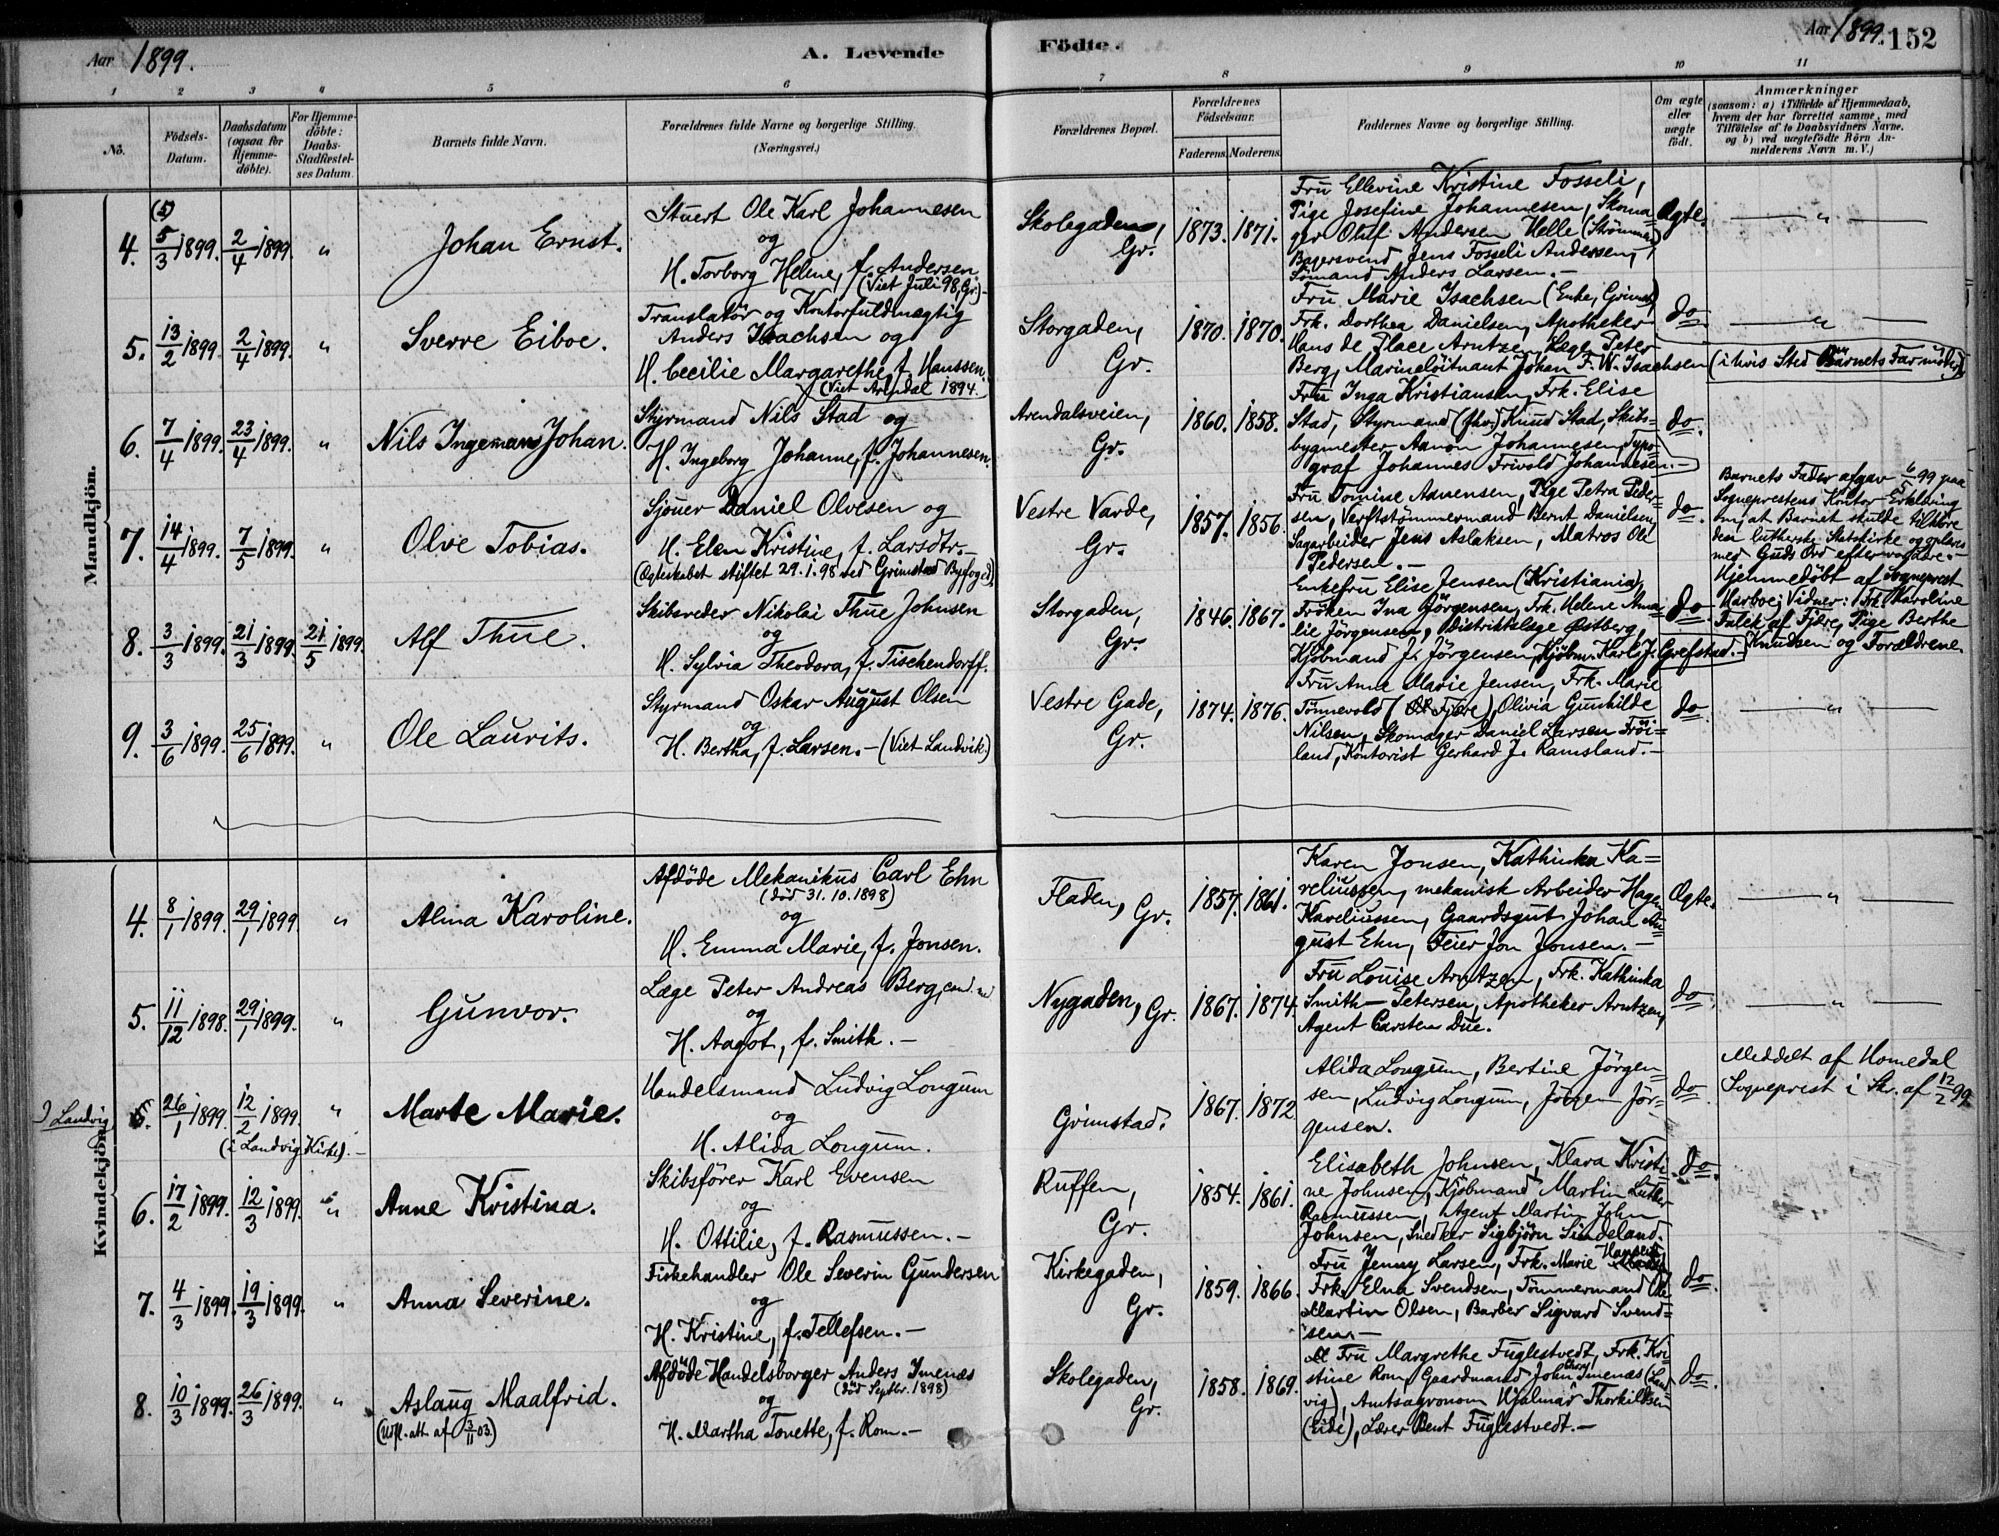 Aar 1899.
A. Levende
Födte.
Aar 1899.
152
1 2 3 4 5 6 7 8 9 10 11
No.
Födsels-
Datum.
Daabsdatum
(ogsaa for
Hjemme-
döbte).
For Hjemme-
döbte:
Daabs-
Stadfæstel-
ses Datum.
Barnets fulde Navn.
Forældrenes fulde Navne og borgerlige Stilling.
(Næringsvei.)
Forældrenes Bopæl.
Forældrenes
Födselsaar.
Faderens. Moderens.
Faddernes Navne og borgerlige Stilling.
Om ægte
eller
uægte
födt.
Anmærkninger
(saasom: a) i Tilfælde af Hjemmedaab,
hvem der har forrettet samme, med
Tilföielse af to Daabsvidners Navne,
og b) ved uægtefödte Börn An-
melderens Navn m. V.)
Mandkjön.
4. 5/3 1899. 2/4 1899. "
Johan Ernst.
Stuert Ole Karl Johannesen
og
H. Torborg Helene, f. Andersen
(Viet Juli 98, Gr.)
Skolegaden,
Gr.
1873. 1871.
Fru Ellevine Kristine Fosseli,
Pige Josefine Johannesen, Skoma-
ger Oluf Andersen Helle (Strömmen)
Bagersvend Jens Fosseli Andersen,
Sömand Anders Larsen.-
Ægte.
— " —
5. 13/2 1899. 2/4 1899. "
Sverre Eiboe.
Translatör og Kontorfuldmægtig
Anders Isachsen og
H. Cecilie Margarethe, f. Hanssen.
(Viet Arendal 1894.
Storgaden,
Gr.
1870. 1870.
Fru Marie Isachsen (Enke, Grimst.)
Frk. Dorthea Danielsen, Apotheker
Hans de Place Arntzen, Læge Peter
Berg, Marinelöitnant Johan F. W. Isachsen
(i hvis Sted Barnets Farmoder)
do.
— " —
6. 7/4 1899. 23/4 1899. "
Nils Ingemann Johan.
Styrmand Nils Stad og
H. Ingeborg Johanne, f. Johannesen.
Arendalsveien,
Gr.
1860. 1858.
Fru Inga Kristiansen, Frk. Elise
Stad, Styrmand (fhv.) Knud Stad, Skibs-
bygmester Aanon Johannesen, Typo-
graf Johannes Frivold Johannesen.-
do.
7. 14/4 1899. 7/5 1899. "
Olve Tobias.
Sjouer Daniel Olvesen og
H. Elen Kristine, f. Larsdtr.-
(Ægteskabet stiftet 29.1.98 ved Grimstad Byfoged)
Vestre Varde,
Gr.
1857. 1856.
Fru Tomine Aanensen, Pige Petra Peder-
sen, Verftstömmermand Bernt Danielsen,
Sagarbeider Jens Aslaksen, Matros Ole
Pedersen.-
do.
Barnets Fader afgav 6/5 99 paa
Sogneprestens Kontor Erklæring
om, at Barnet skulde tilhöre
den lutherske Statskirke og oplæres
med Guds Ord efter vor Lære.-
8. 3/3 1899. 21/3 1899. 21/5 1899.
Alf Thue.
Skibsreder Nikolai Thue Johnsen
og
H. Sylvia Theodora, f. Tischendorff.
Storgaden,
Gr.
1846. 1867.
Enkefru Elise Jensen (Kristiania),
Fröken Ina Jörgensen, Frk. Helene Ama-
lie Jörgensen, Distriktslæge Østberg,
Kjöbmand J. Jörgensen, Kjöbm. Karl J. Grefstad.-
do
Hjemmedöbt af Sogneprest
Harboe; Vidner: Frk. Karoline
Falck af Fjære, Pige Berthe
Knudsen og Forældrene.
9. 3/6 1899. 25/6 1899. "
Ole Laurits.
Styrmand Oskar August Olsen
og
H. Bertha, f. Larsen.-(Viet Landvik.)
Vestre Gade,
Gr.
1874. 1876.
Fru Anna Marie Jensen, Frk. Marie
Tönnevold (Fjære), Olivia Gunhilde
Nilsen, Skomager Daniel Larsen Fröi-
land, Kontorist Gerhard J. Ramsland.-
do.
— " —
Kvindekjön.
4. 8/1 1899. 29/1 1899. "
Alma Karoline.
Afdöde Mekanikus Carl Ehn
(död 31.10.1898)
og
H. Emma Marie, f. Jonsen.
Fladen, Gr.
1857. 1861.
Karen Jonsen, Kathinka Ka-
reliussen, mekanisk Arbeider Hagen
Kareliussen, Gaardsgut Johan Au-
gust Ehn, Feier Jon Jonsen.-
Ægte.
— " —
5. 11/12 1898. 29/1 1899. "
Gunvor.
Læge Peter Andreas Berg, cand. med
og
H. Aagot, f. Smith.-
Nygaden, Gr.
1867. 1874.
Fru Louise Arntzen, Frk. Kathinka
Smith-Petersen, Apotheker Arntzen,
Agent Carsten Due.
do.
— " —
I Landvig
5. 26/1 1899. 12/2 1899. "
(i Landvig Kirke).-
Marte Marie.
Handelsmand Ludvig Longum
og
H. Alida Longum.
Grimstad.
1867. 1872
Alida Longum, Bertine Jörgen-
sen, Ludvig Longum, Jörgen Jör-
gensen.
do.
Meddelt af Homedal
Sogneprest i Skr. af 12/2 99.
6. 17/2 1899. 12/3 1899. "
Anne Kristina.
Skibsförer Karl Evensen
og
H. Ottilie, f. Rasmussen.-
Ruffen,
Gr.
1854. 1861.
Elisabeth Johnsen, Klara Kristi-
ne Johnsen, Kjöbmand Martin Luther
Rasmussen, Agent Martin John
Johnsen, Snedker Sigbjörn Sindeland.
do.
7. 4/3 1899. 19/3 1899. "
Anna Severine.
Fiskehandler Ole Severin Gundersen
og
H. Kristine, f. Tellefsen.-
Kirkegaden,
Gr.
1859. 1866.
Fru Jenny Larsen, Frk. Marie Hansen,
Frk. Elna Svendsen, Tömmermand Ole
Martin Olsen, Barber Sigvard Svend-
sen.-
do.
8. 10/3 1899. 26/3 1899. "
Aslaug Maalfrid.
(Udfl. att. af 3/11 03.)
Afdöde Handelsborger Anders Imenæs
(död Septbr. 1898)
og
H. Martha Tonette, f. Rom.-
Skolegaden,
Gr.
1858. 1869.
Fru Margrethe Fuglestvedt, Frk. Kri-
stine Rom, Gaardmand John Imenæs (Land-
vig), Amtsagronom Hjalmar Thorkildsen
(Eide), Lærer Bent Fuglestvedt.-
do.